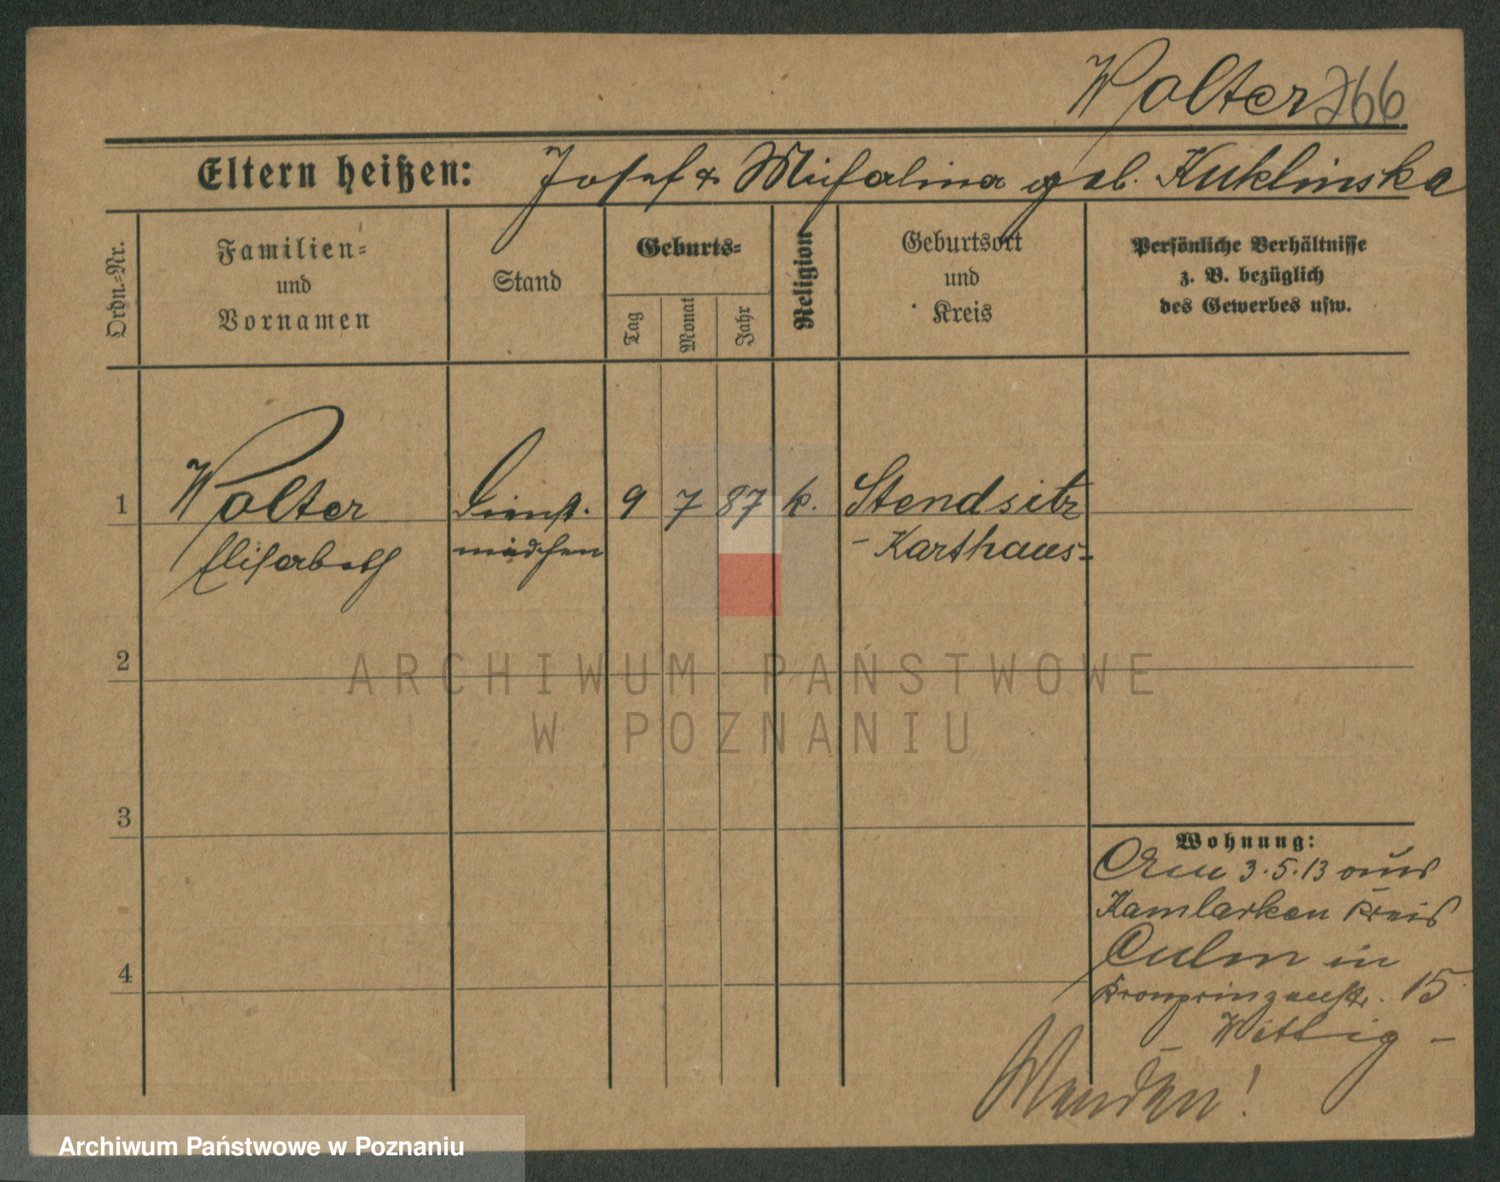 Wolter 266
Eltern heißen: Josef & Michalina geb. Kuklinska
Ordn.-Nr.
Familien-
und
Vornamen
Stand
Geburts-
Tag
Monat
Jahr
Religion
Geburtsort
und
Kreis
Persönliche Verhältnisse
z. B. bezüglich
des Gewerbes usw.
1 Wolter Dienst- 9 7 87 k. Stendsitz
Elisabeth mädchen - Karthaus -
2
ARCHIWUM PAŃSTWOWE
W POZNANIU
3
Wohnung:
3.5.13 aus
Kamlarken Kreis
Culm in
4
Kronprinzenstr. 15
Wittig -
Wenden!
Archiwum Państwowe w Poznaniu